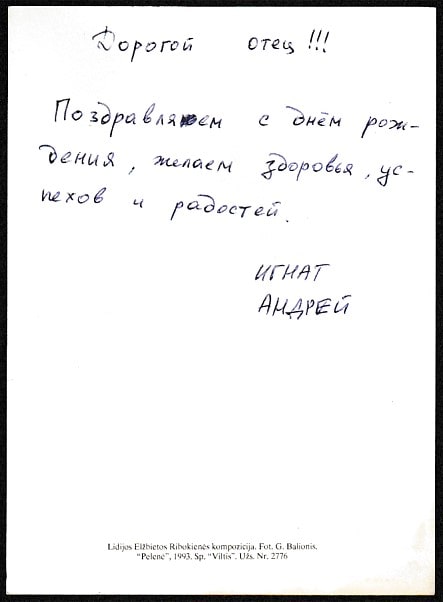 Дорогой отец!!!
Поздравляем с днём рож-
дения, желаем здоровья, ус-
пехов и радостей.
ИГНАТ
АНДРЕЙ
Lidijos Elžbietos Ribokienės kompozicija. Fot. G. Balionis.
"Pelenė", 1993. Sp. "Viltis". Užs. Nr. 2776